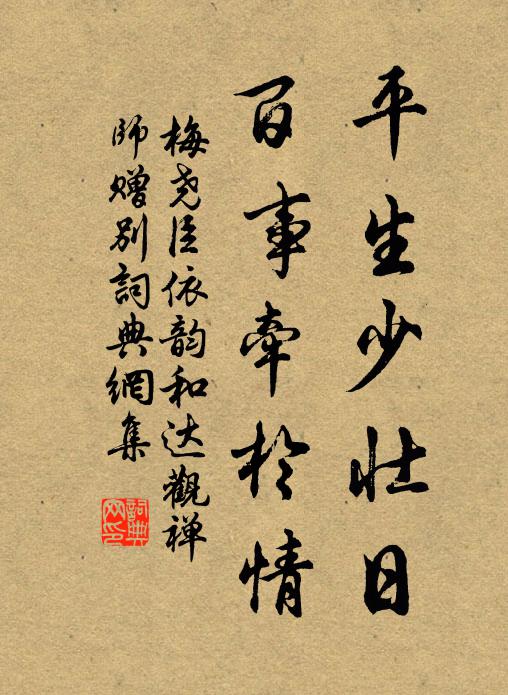 平生少壮日
百事牵於情
梅尧臣依韵和达觀禅
師赠别詞典網集
詞典
网印